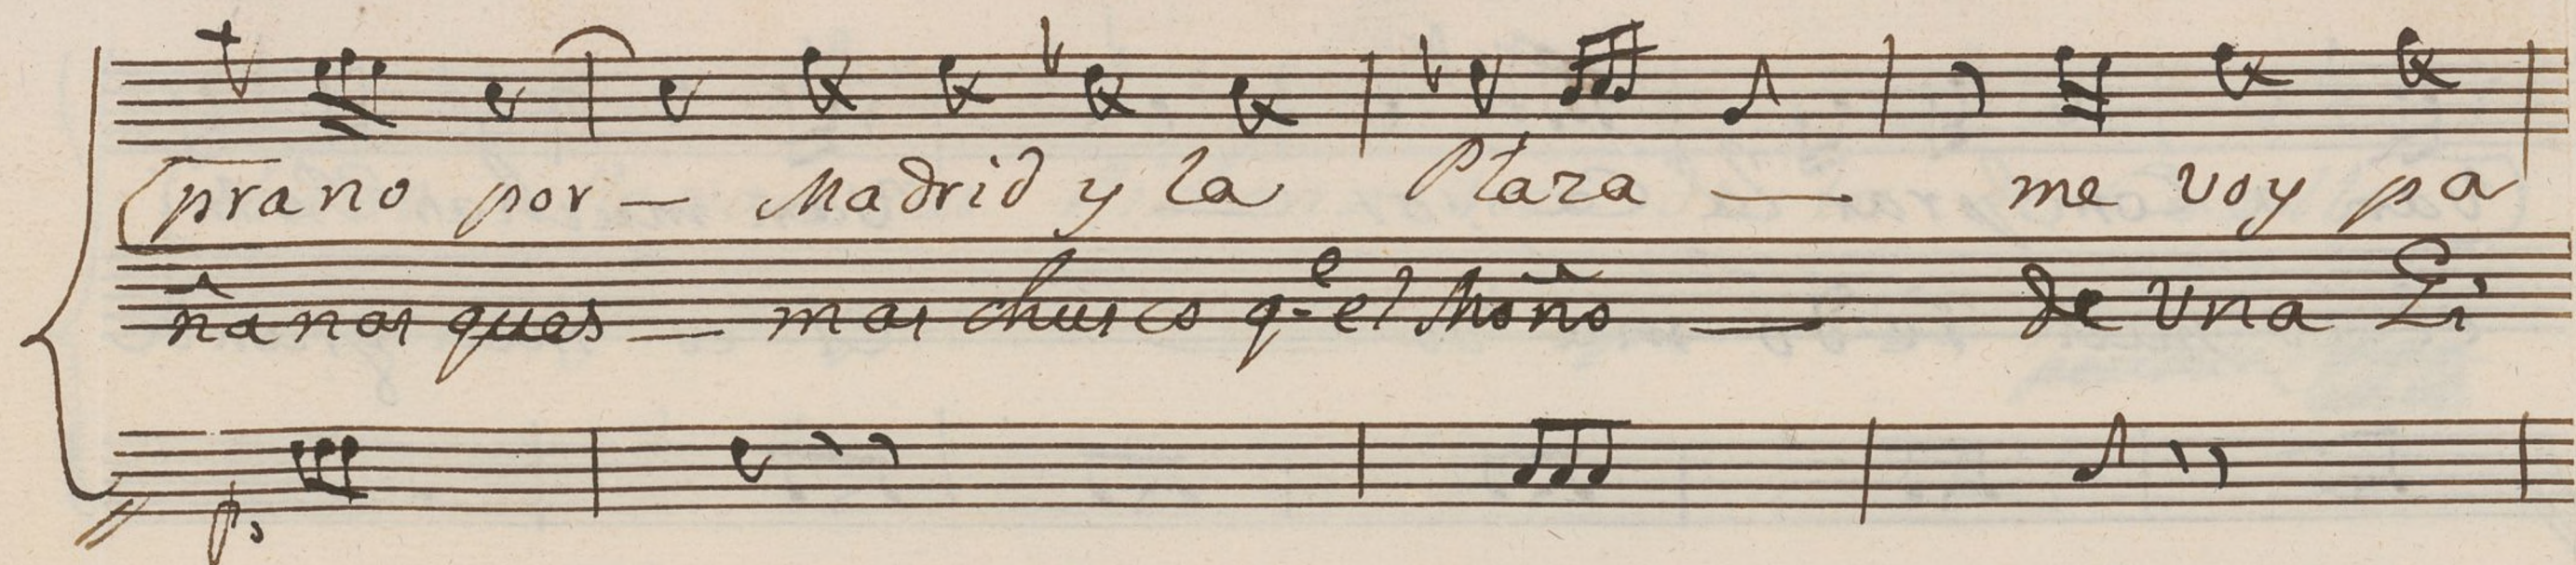 prano por — Madrid y la Plaza — me voy pa
ñanas ques — mas chusco q.e el Moño — de Una Zi
p.